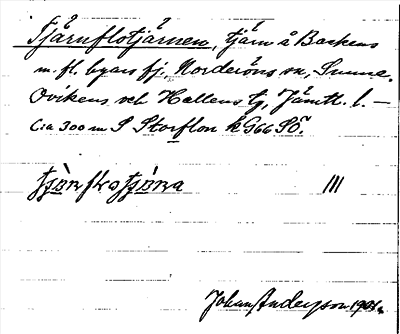 Tjärnflotjärnen, tjärn å Backens
m. fl. byars fj, Norderöns sn, Sunne,
Ovikens och Hallens tg, Jämtl. l. —
C:a 300 m S Storflon k G66 SÖ.
III
Johan Anderson 19